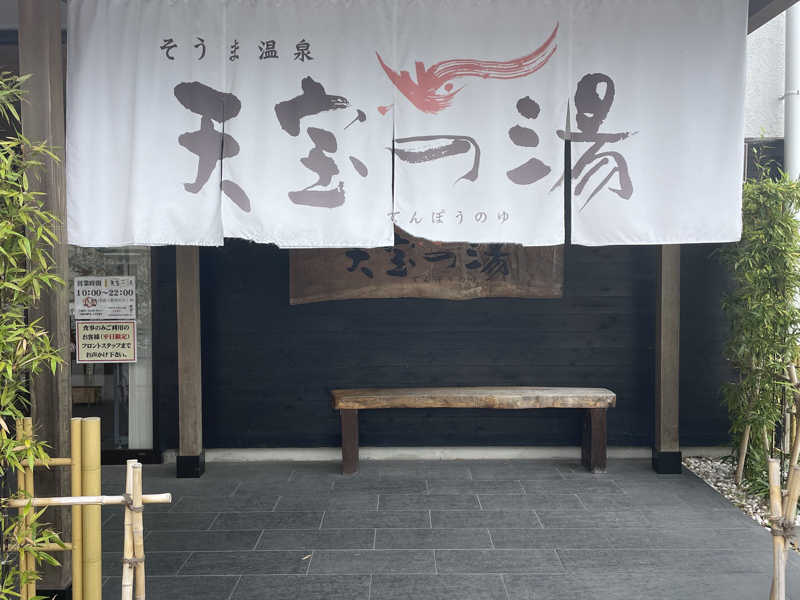 そうま温泉
天宝の湯
てんぽうのゆ
天宝の湯
営業時間
10:00〜22:00
食事のみご利用の
お客様(平日限定)
フロントスタッフまで
お声かけ下さい。